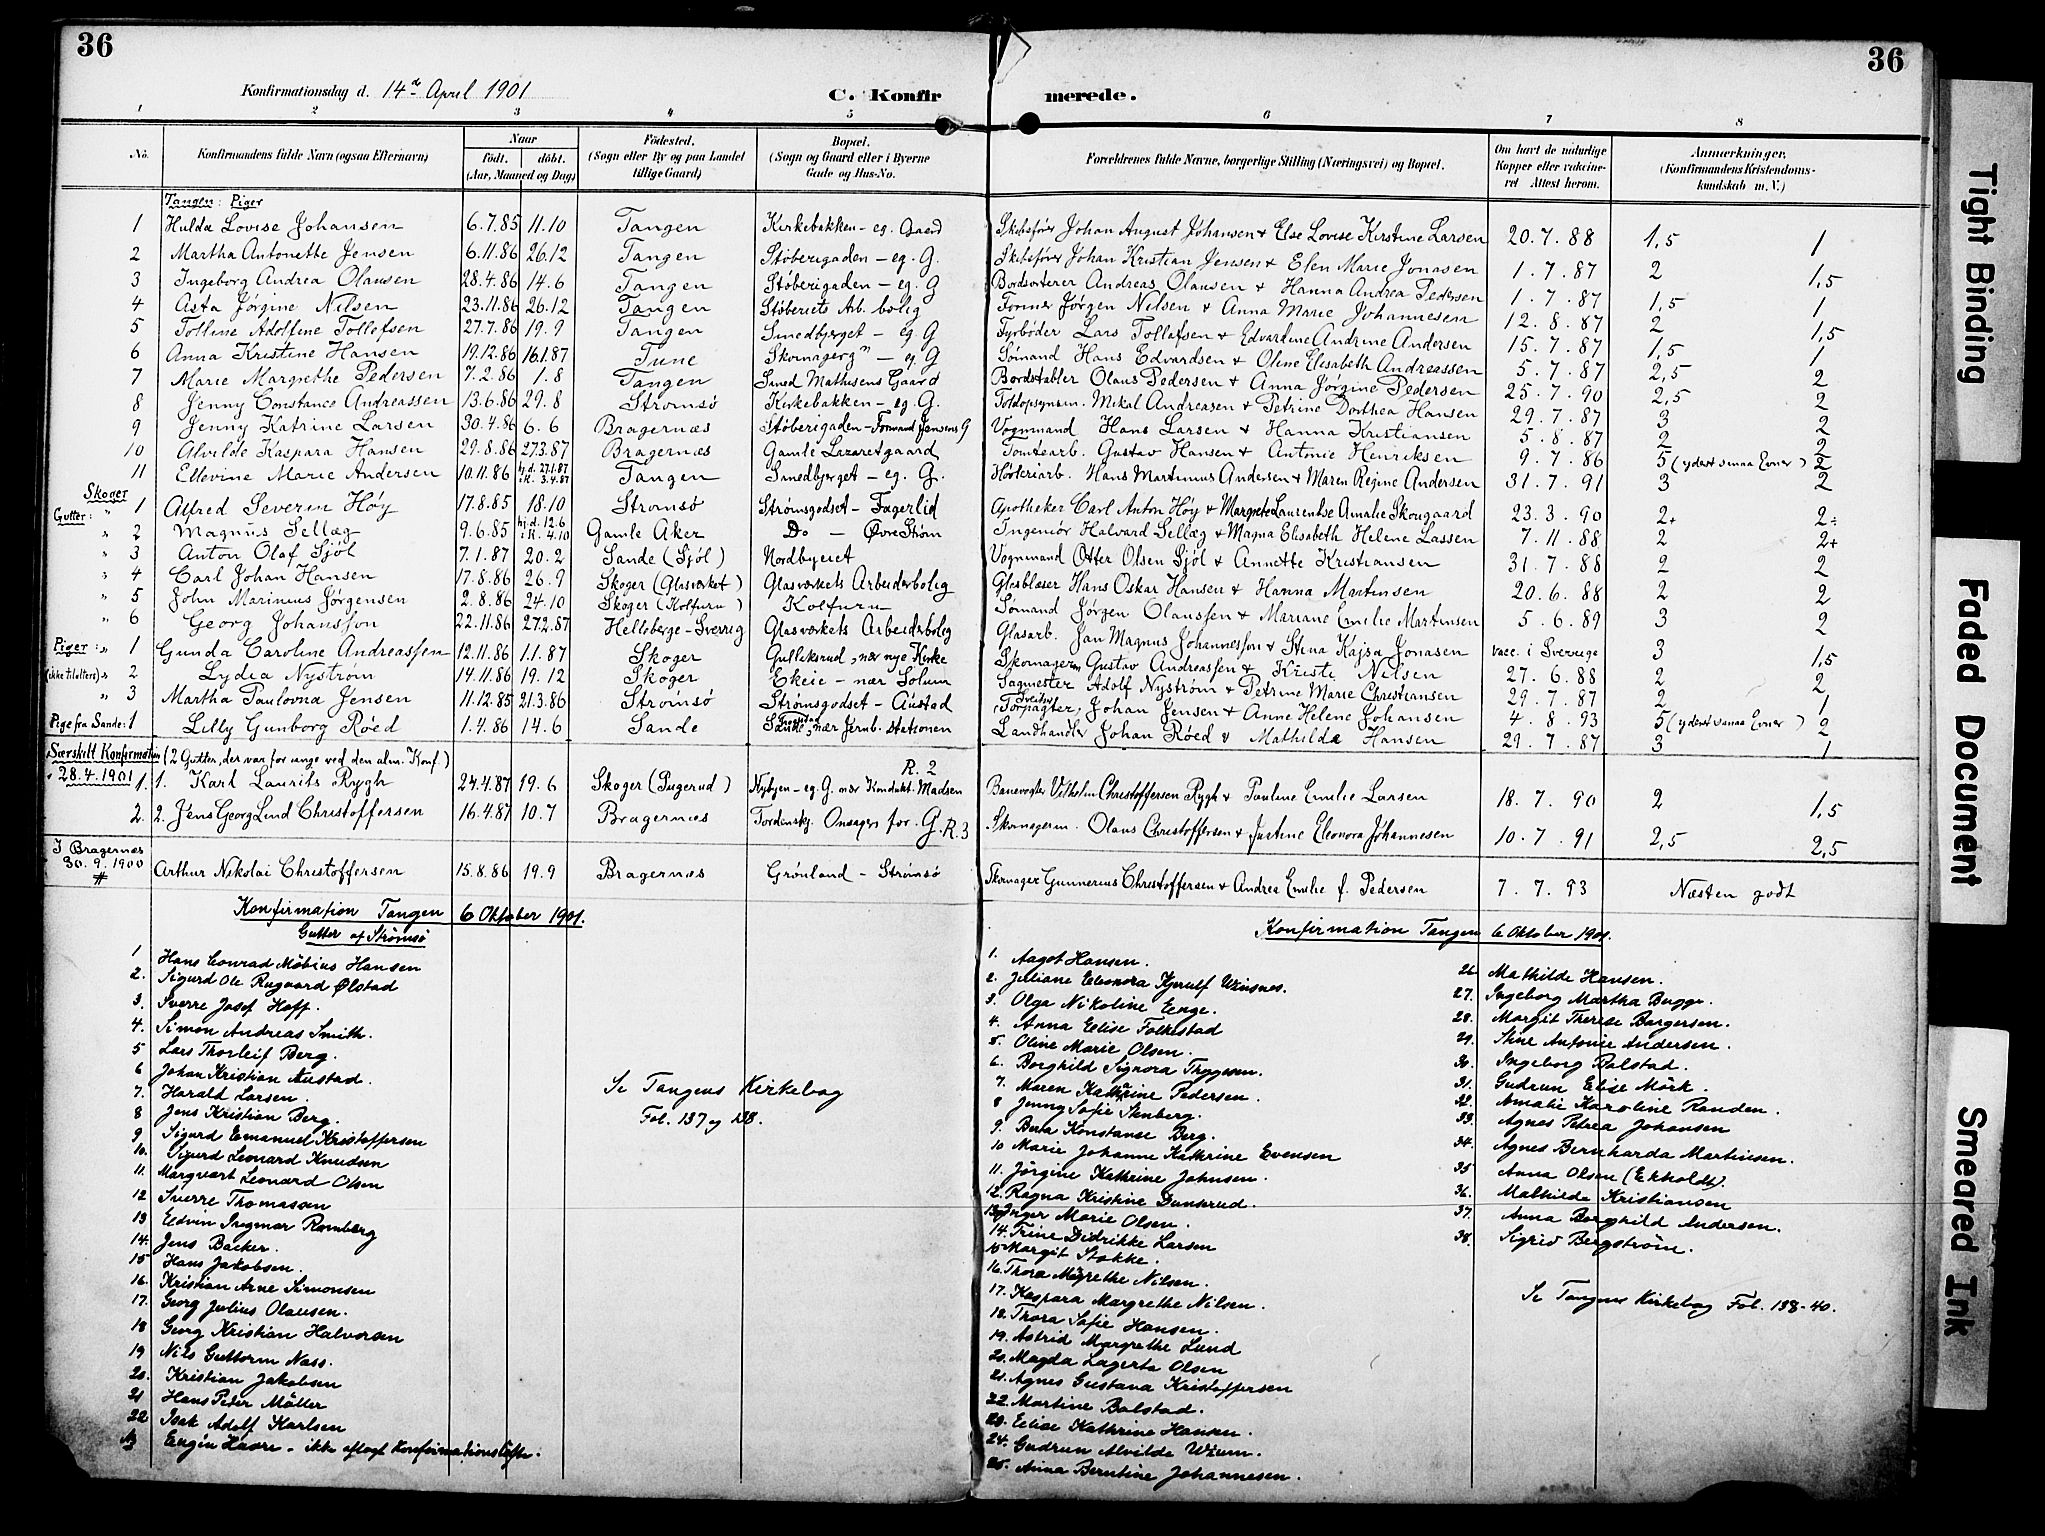 36
36
Konfirmationsdag d. 14de April 1901
C. Konfirmerede.
1 2 3 4 5 6 7 8
No.
Konfirmandens fulde Navn (ogsaa Efternavn)
Naar
født. døbt.
(Aar, Maaned og Dag)
Födested.
(Sogn eller By og paa Landet
tillige Gaard)
Bopæl.
(Sogn og Gaard eller i Byerne
Gade og Hus-No.
Forældrenes fulde Navne, borgerlige Stilling (Næringsvei) og Bopæl.
Om havt de naturlige
Kopper eller vakcine-
ret Attest herom.
Anmærkninger,
(Konfirmandens Kristendoms-
kundskab m. V.)
Tangen: Piger
1 Hulda Lovise Johansen 6.7.85 11.10 Tangen Kirkebakken - eg. Gaard Skibsfører Johan August Johansen & Else Lovise Kirstine Larsen 20.7.88 1,5 1
2 Martha Antonette Jensen 6.11.86 26.12 Tangen Støberigaden - eg. G. Skibsfører Johan Kristian Jensen & Elen Marie Jonasen 1.7.87 2 1,5
3 Ingeborg Andrea Olausen 28.4.86 14.6 Tangen Støberigaden - eg. G Bordsorterer Andreas Olausen & Hanna Andrea Pedersen 1.7.87 1,5 1
4 Asta Jørgine Nilsen 23.11.86 26.12 Tangen Støberiets Arb. bolig Former Jørgen Nilsen & Anna Marie Johannesen 12.8.87 2 1,5
5 Tolline Adolfine Tollefsen 27.7.86 19.9 Tangen Smedbjerget - eg G Fyrbøder Lars Tollefsen & Edvardine Andrine Andersen 15.7.87 1,5 1
6 Anna Kristine Hansen 19.12.86 16.1.87 Tune Skomagerg - eg G Sømand Hans Edvardsen & Oline Elisabeth Andreassen 5.7.87 2,5 2
7 Marie Margrethe Pedersen 7.2.86 1.8 Tangen Smed Mathisens Gaard Bordstabler Olaus Pedersen & Anna Jørgine Pedersen 25.7.90 2,5 2
8 Jenny Constance Andreassen 13.6.86 29.8 Strømsø Kirkebakken - eg. G. Toldopsynsm. Mikal Andreasen & Petrine Dorthea Hansen 29.7.87 3 2
9 Jenny Katrine Larsen 30.4.86 6.6 Bragernæs Støberigaden - Formand Jensens G Vognmand Hans Larsen & Hanna Kristiansen 5.8.87 2 2
10 Alvilde Kaspara Hansen 29.8.86 27.3.87 Bragernæs Gamle Lazaretgaard Tomtearb. Gustav Hansen & Antonie Henriksen 9.7.86 5 (yderst smaa Evner) 2
11 Ellevine Marie Andersen 10.11.86 hj.d. 27.1.87 i K. 3.4.87 Tangen Smedbjerget - eg. G. Høvleriarb. Hans Martinius Andersen & Maren Regine Andersen 31.7.91 3 2
Skoger
Gutter: " 1 Alfred Severin Høy 17.8.85 18.10 Strømsø Strømsgodset - Fagerlid Apotheker Carl Anton Høy & Margrete Laurentse Amalie Skougaard 23.3.90 2+ 2÷
" 2 Magnus Sellæg 9.6.85 hj.d. 12.6 i K. 4.10 Gamle Aker Do - Øvre Strøm Ingeniør Halvard Sellæg & Magna Elisabeth Helene Lassen 7.11.88 2 2+
" 3 Anton Olaf Sjöl 7.1.87 20.2 Sande (Sjöl) Nordbyeret Vognmand Otter Olsen Sjöl & Annette Kristiansen 31.7.88 2 2
" 4 Carl Johan Hansen 17.8.86 26.9 Skoger (Glasværket) Glasværkets Arbeiderbolig Glasblæser Hans Oskar Hansen & Hanna Martinsen 20.6.88 2 2
" 5 John Marinius Jørgensen 2.8.86 24.10 Skoger (Kolfuru) Kolfuru Sømand Jörgen Olaussen & Mariane Emilie Martinsen 5.6.89 3 2
" 6 Georg Johansson 22.11.86 27.2.87 Helleberge - Sverrig Glasværkets Arbeiderbolig Glasarb. Jan Magnus Johannesson & Stina Kajsa Jonasen vacc. i Sverrige 3 1,5
Piger: " 1 Gunda Caroline Andreassen 12.11.86 1.1.87 Skoger Gulleksrud, nær nye Kirke Skomagerm Gustav Andreassen & Kirsti Nilsen 27.6.88 2 2
(ikke tiloltere) " 2 Lydia Nyström 14.11.86 19.12 Skoger Ekeie - nær Solum Sagmester Adolf Nyström & Petrine Marie Christiansen 29.7.87 2 1
" 3 Martha Paulovna Jensen 11.12.85 21.3.86 Strømsø Strømsgodset - Austad Forpagter, Johan Jensen & Anne Helene Johansen 4.8.93 5 (yderst smaa Evner) 2
Pige fra Sande: 1 Lilly Gunborg Røed 1.4.86 14.6 Sande Sande, nær Jernb. stationen Landhandler Johan Røed & Mathilde Hansen 29.7.87 3 1
Særskilt Konfirmation (2 Gutter, der var for unge ved den alm. Konf.)
28.4.1901
1. 1. Karl Laurits Rygh 24.4.87 19.6 Skoger (Pugerud) Nybyen - eg. G. nær Kondukt. Madsen R. 2 Banevogter Vilhelm Christoffersen Rygh & Pauline Emilie Larsen 18.7.90 2 1,5
2. 2. Jens Georg Lund Christoffersen 16.4.87 10.7 Bragernæs Tordenskj. Onsager for. G. R. 3 Skomagerm. Olaus Christoffersen & Justine Eleonora Johannesen 10.7.91 2,5 2,5
I Bragernæs
30.9.1900
# Arthur Nikolai Christoffersen 15.8.86 19.9 Bragernæs Grønland - Strømsø Skomager Gunnerius Christoffersen & Andrea Emilie f. Pedersen 7.7.93 Næsten godt
Konfirmation Tangen 6 Oktober 1901.
Gutter af Strömsö
1 Hans Conrad Möbius Hansen
2. Sigurd Ole Rugaard Ølstad
3. Sverre Josef Hoff.
4. Simon Andreas Smith.
5 Lars Thorleif Berg.
6 Johan Kristian Austad.
7. Harald Larsen.
8 Jens Kristian Berg.
9 Sigurd Emanuel Kristoffersen
10. Sigurd Leonard Knudsen
11. Margvart Leonard Olsen
12 Sverre Thomassen
13 Edvin Ingmar Ramberg
14. Jens Backer.
15 Hans Jakobsen.
16. Kristian Arne Simonsen
17. Georg Julius Olausen.
18 Georg Kristian Halvorsen
19 Nils Guttorm Næss.
20. Kristian Jakobsen
21 Hans Peder Möller
22 Isak Adolf Karlsen
ikke aflagt Konfirmationsløfte.
Se Tangens Kirkebog
Fol. 137 og 138.
Konfirmation Tangen 6 Oktober 1901.
1. Aagot Hansen.
2. Juliane Eleonora Kjerulf Winsnes.
3. Olga Nikoline Enge.
4. Anna Elise Folkestad
5. Oline Marie Olsen.
6. Borghild Signora Thygesen.
7. Maren Kathrine Pedersen.
8 Jenny Sofie Stenberg.
9. Berta Konstanse Berg.
10 Marie Johanne Kathrine Evensen
11. Jörgine Kathrine Johnsen.
12. Ragna Kristine Dunserud.
13. Inger Marie Olsen.
14. Trine Didrikke Larsen
15 Margit Stokke.
16. Thora Magrethe Nilsen.
17. Kaspara Margrethe Nilsen.
18. Thora Sofie Hansen.
19. Astrid Margrethe Lund
20. Magda Lagerta Olsen
21. Agnes Gustava Kristoffersen
22. Martine Bolstad.
23. Elise Kathrine Hansen.
24. Gudrun Alvilde Wium.
25. Anna Berntine Johannesen.
26 Mathilde Hansen.
27. Ingeborg Martha Bugge.
28. Margit Therese Borgersen.
29. Stine Antonie Andersen.
30. Ingeborg Bolstad.
31. Gudrun Elise Mörk.
32. Amalie Karoline Randen.
33. Agnes Petrea Johansen
34. Agnes Bernharda Martinsen.
35 Anna Olsen (Ekholdt)
36. Mathilde Kristiansen
37. Anna Borghild Andersen.
38. Sigrid Bergström.
Se Tangens Kirkebog Fol. 138-40.
Tight Binding
Faded Document
Smeared Ink